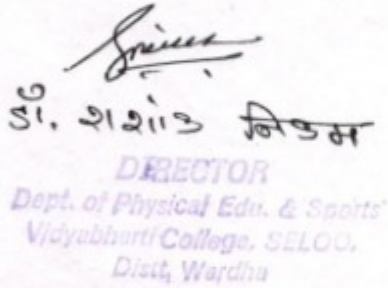 डॉ. शशांक निकम
DIRECTOR
Dept. of Physical Edu. & Sports
Vidyabharti College, SELOO,
Distt, Wardha